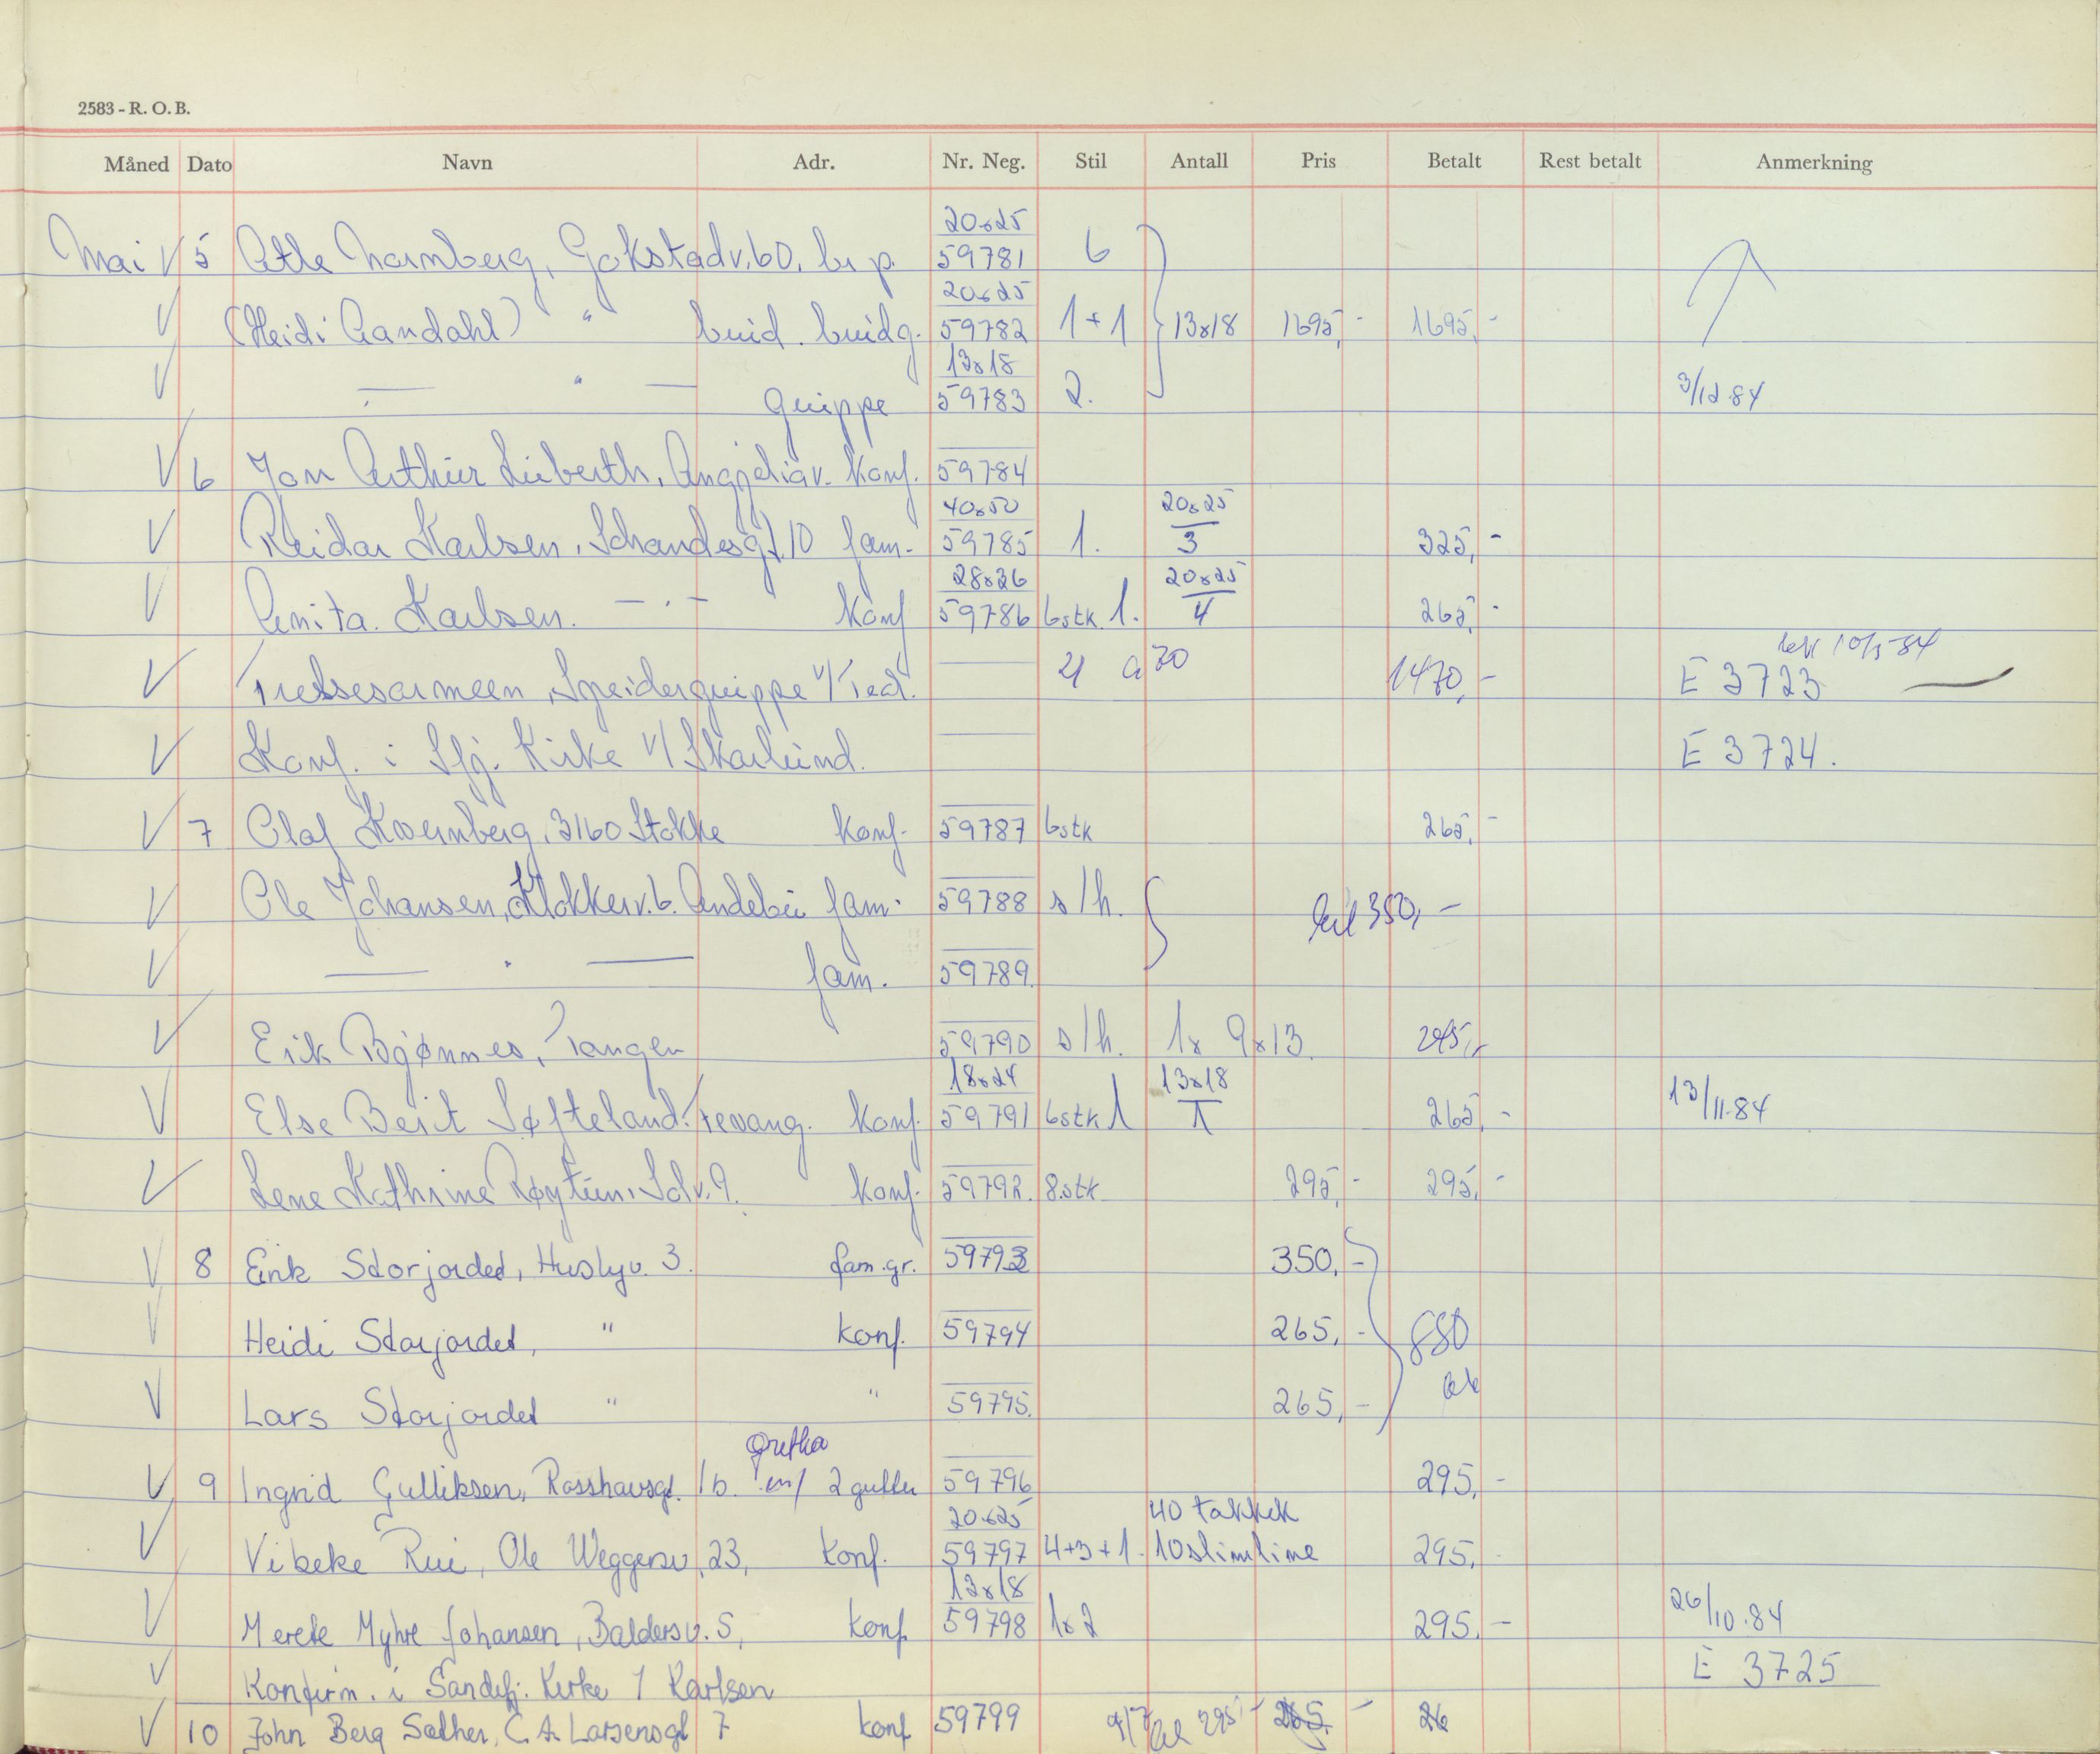 2583 - R. O. B.
Måned Dato Navn Adr. Nr. Neg. Stil Antall Pris Betalt Rest betalt Anmerkning
20x25
Mai V 5 Atle Gokstadv. 60. br p. 59781 6
20x25
V (Heidi " brud. brudg. 59782 1+1 13x18 1695,- 1695,-
13x18
V — " — gruppe 59783 2. 3/12 84
V 6 Jan Arthur konf. 59784
40x50 20x25
V Reidar Karlsen, 10 fam. 59785 1. 3 325,-
28x36 20x25
V Anita Karlsen. — " — konf 59786 6stk. 1. 4 265,-
84
V Frelsesarmeen, Speidergruppe v/ 21 a 70 1470,- E 3723
V Konf. i Sfj. Kirke v/ Skarlund. E 3724.
V 7 Olaf Kvernberg, 3160 Stokke konf. 59787 6stk 265,-
V Ole Johansen, Klokkerv. 6. Andebu fam. 59788 s/h. 350,-
V — " — fam. 59789.
V Erik Bjønnes, Tangen 59790 s/h. 1x 9x13 245,-
18x24 13x18
V Else Berit Søfteland. konf. 59791 6stk 1 1 265,- 13/11-84
V Lene Kathrine Røytun, 9. konf. 59792. 8.stk 295,- 295,-
V 8 Erik Storjordet, Huslyv. 3. fam.gr. 59793 350,-
V Heidi Storjordet, " konf. 59794 265,- 880
V Lars Storjordet " " 59795. 265,-
Gretha
V 9 Ingrid Gulliksen, 1b. m/ 2 gutter 59796 295,-
20x25 40 takkek
V Vibeke Rui, Ole Weggersv. 23, konf. 59797 4+3+1. 10 slimline 295,-
13x18
V Merete Myhre Johansen, Baldersv. 5, konf 59798 1x2 295,- 26/10.84
V Konfirm. i Sandefj. Kirke / Karlsen E 3725
V 10 John Berg Sæther, C. A. Larsensgt 7 konf 59799 295,-